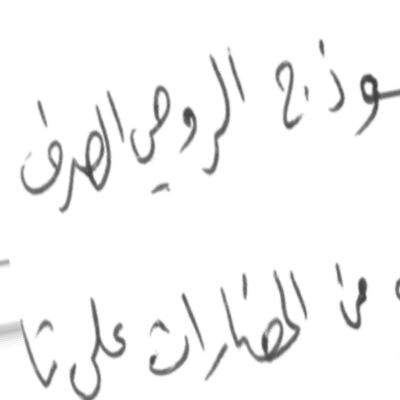 وذج الروحي الصرف
من الحضارات على